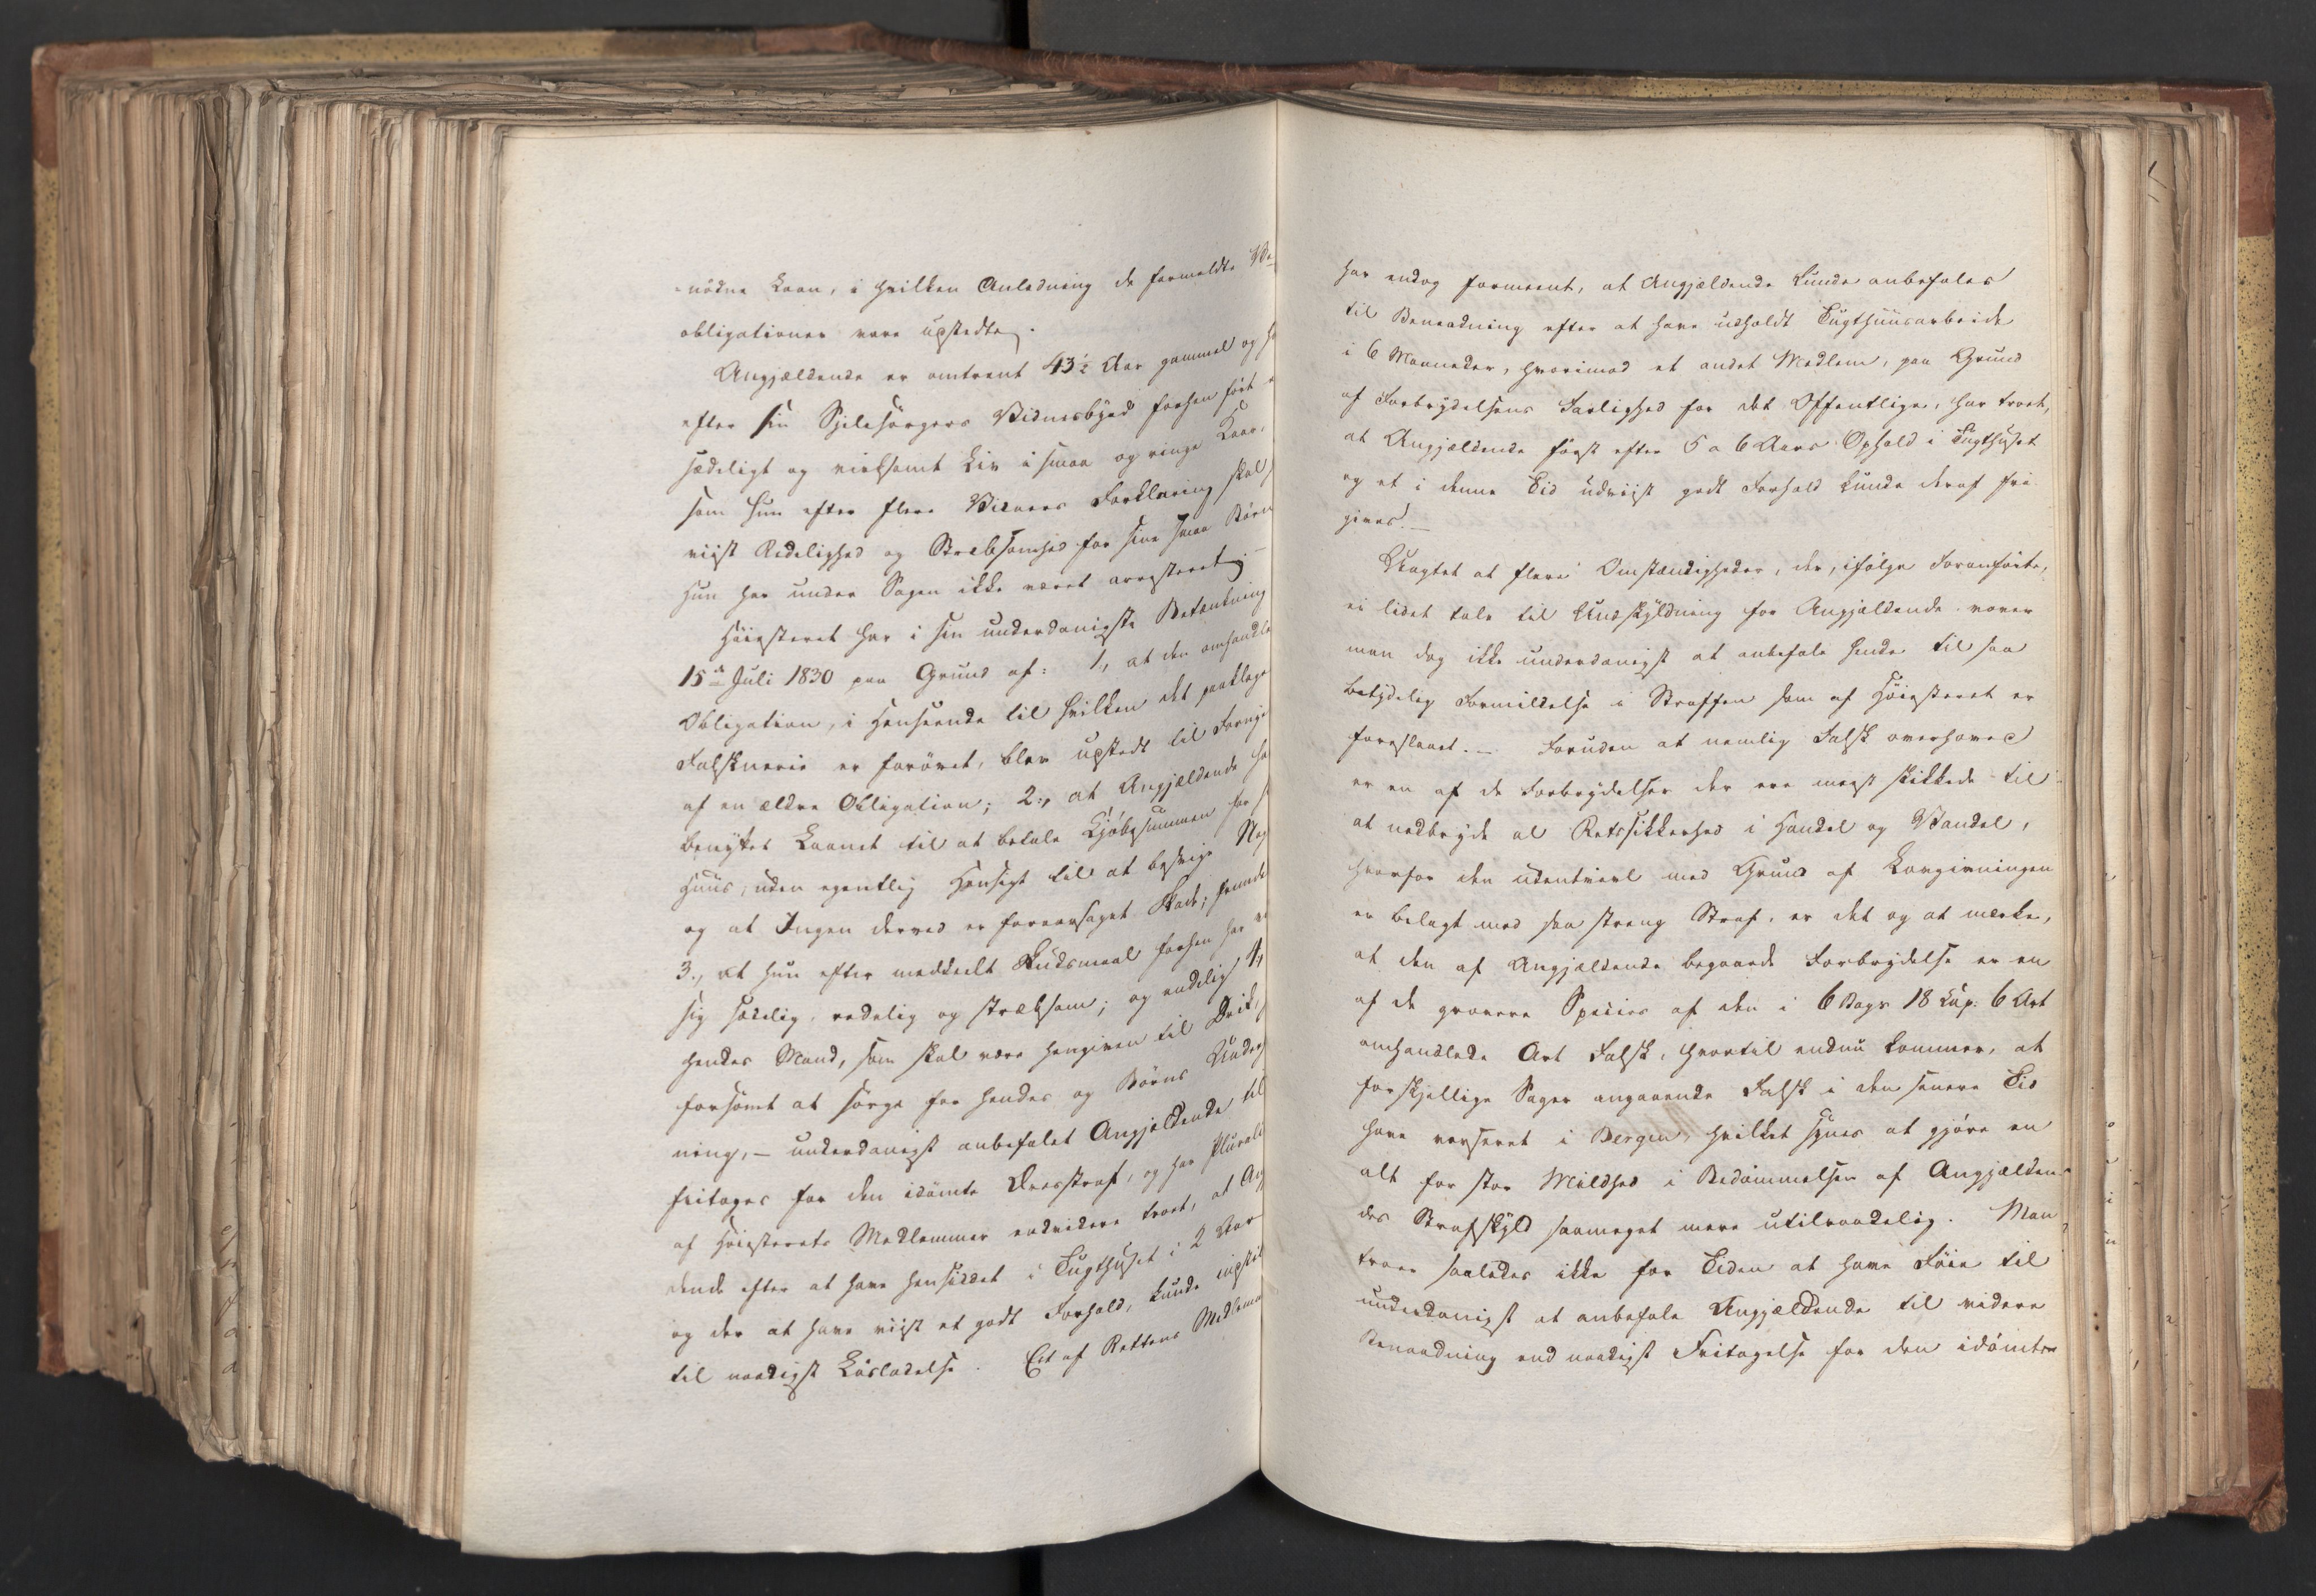 nödne Laan, i hvilken Anledning de formeldte
obligationer vare udstedte.
Angjældende er omtrent 43½ Aar gammel og
efter sin Sjelesörgers Vidnesbyrd forhen fört
sædeligt og virksomt Liv i smaa og ringe Kaar,
som hun efter flere Vidners Forklaring skal
viist Redelighed og Stræbsomhed for sine smaa Börn
Hun har under Sagen ikke været arresteret;
Höiesteret har i sin underdanigste Betænkning
15de Juli 1830 paa Grund af: 1, at den omhandle
Obligation, i Henseende til hvilken det paaklage
Falskneri er forövet, blev udstedt til Fornye
af en ældre Obligation; 2, at Angjældende ha
benyttet Laanet til at betale Kjöbesummen for
Huus, uden egentlig Hensigt til at besvige Nog
og at Ingen derved er foraarsaget Skade; fremde
3., at hun efter meddeelt Skudsmaal forhen har
sig sædelig, redelig og stræbsom; og endelig 4,
hendes Mand, som skal være hengiven til Drik,
forsömt at sörge for hendes og Börns Under
ning, – underdanigst anbefalet Angjældende til
fritages for den idömte Æresstraf, og har Plurali
af Höiesterets Medlemmer endvidere troet, at Ang
dende efter at have hensiddet i Tugthuset i 2 Aar
og der at have viist et godt Forhold, kunde
til naadigst Lösladelse. Eet af Rettens Medlem
har endog formeent, at Angjældende kunde anbefales
til Benaadning efter at have udholdt Tugthuusarbeide
i 6 Maaneder, hvorimod et andet Medlem, paa Grund
af Forbrydelsens Farlighed for det Offentlige, har troet,
at Angjældende först efter 5 a 6 Aars Ophold i Tugthuset
og et i denne Tid udviist godt Forhold kunde deraf fri-
gives. –
Uagtet at flere Omstændigheder, der, ifölge Foranförte,
ei lidet tale til Undskyldning for Angjældende vover
man dog ikke underdanigst at anbefale hende til saa
betydelig Formildelse i Straffen som af Höiesteret er
foreslaaet. – Foruden at nemlig Falsk overhoved
er en af de Forbrydelser der ere meest skikkede til
at nedbryde al Retssikkerhed i Handel og Vandel,
hvorfor den udentvivl med Grund af Lovgivningen
er belagt med saa streng Straf, er det og at mærke,
at den af Angjældende begaaede Forbrydelse er en
af de grovere Species af den i 6 Bogs 18 Cap: 6 Art
omhandlede Art Falsk, hvortil endnu kommer, at
forskjellige Sager angaaende Falsk i den senere Tid
have verseret i Bergen, hvilket synes at gjöre en
alt for stor Mildhed i Bedömmelsen af Angjælden-
des Strafskyld saameget mere utilraadelig. Man
troer saaledes ikke for Tiden at have Föie til
underdanigst at anbefale Angjældende til videre
Benaadning end naadigst Fritagelse for den idömte